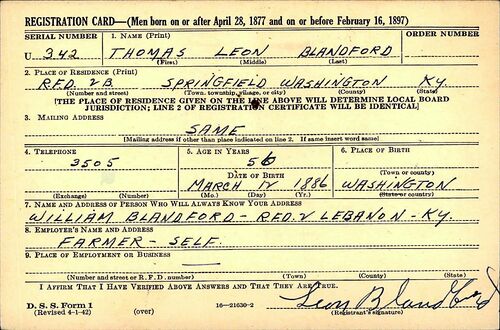 REGISTRATION CARD—(Men born on or after April 28, 1877 and on or before February 16, 1897)
SERIAL NUMBER 1. NAME (Print) ORDER NUMBER
U 342 THOMAS LEON BLANDFORD
(First) (Middle) (Last)
2. PLACE OF RESIDENCE (Print)
R.F.D. 2 B. SPRINGFIELD WASHINGTON KY.
(Number and street) (Town, township, village, or city) (County) (State)
[THE PLACE OF RESIDENCE GIVEN ON THE LINE ABOVE WILL DETERMINE LOCAL BOARD
JURISDICTION; LINE 2 OF REGISTRATION CERTIFICATE WILL BE IDENTICAL]
3. MAILING ADDRESS
SAME
[Mailing address if other than place indicated on line 2. If same insert word same]
4. TELEPHONE 5. AGE IN YEARS 6. PLACE OF BIRTH
3505 56
(Town or county)
DATE OF BIRTH
MARCH 1886 WASHINGTON
(Exchange) (Number) (Mo.) (Day) (Yr.) (State or country)
7. NAME AND ADDRESS OF PERSON WHO WILL ALWAYS KNOW YOUR ADDRESS
WILLIAM BLANDFORD - R.F.D. 2 LEBANON - KY.
8. EMPLOYER'S NAME AND ADDRESS
FARMER - SELF.
9. PLACE OF EMPLOYMENT OR BUSINESS
(Number and street or R. F. D. number) (Town) (County) (State)
I AFFIRM THAT I HAVE VERIFIED ABOVE ANSWERS AND THAT THEY ARE TRUE.
D. S. S. Form 1 16—21630-2 Leon Blandford
(Revised 4-1-42) (over) (Registrant's signature)